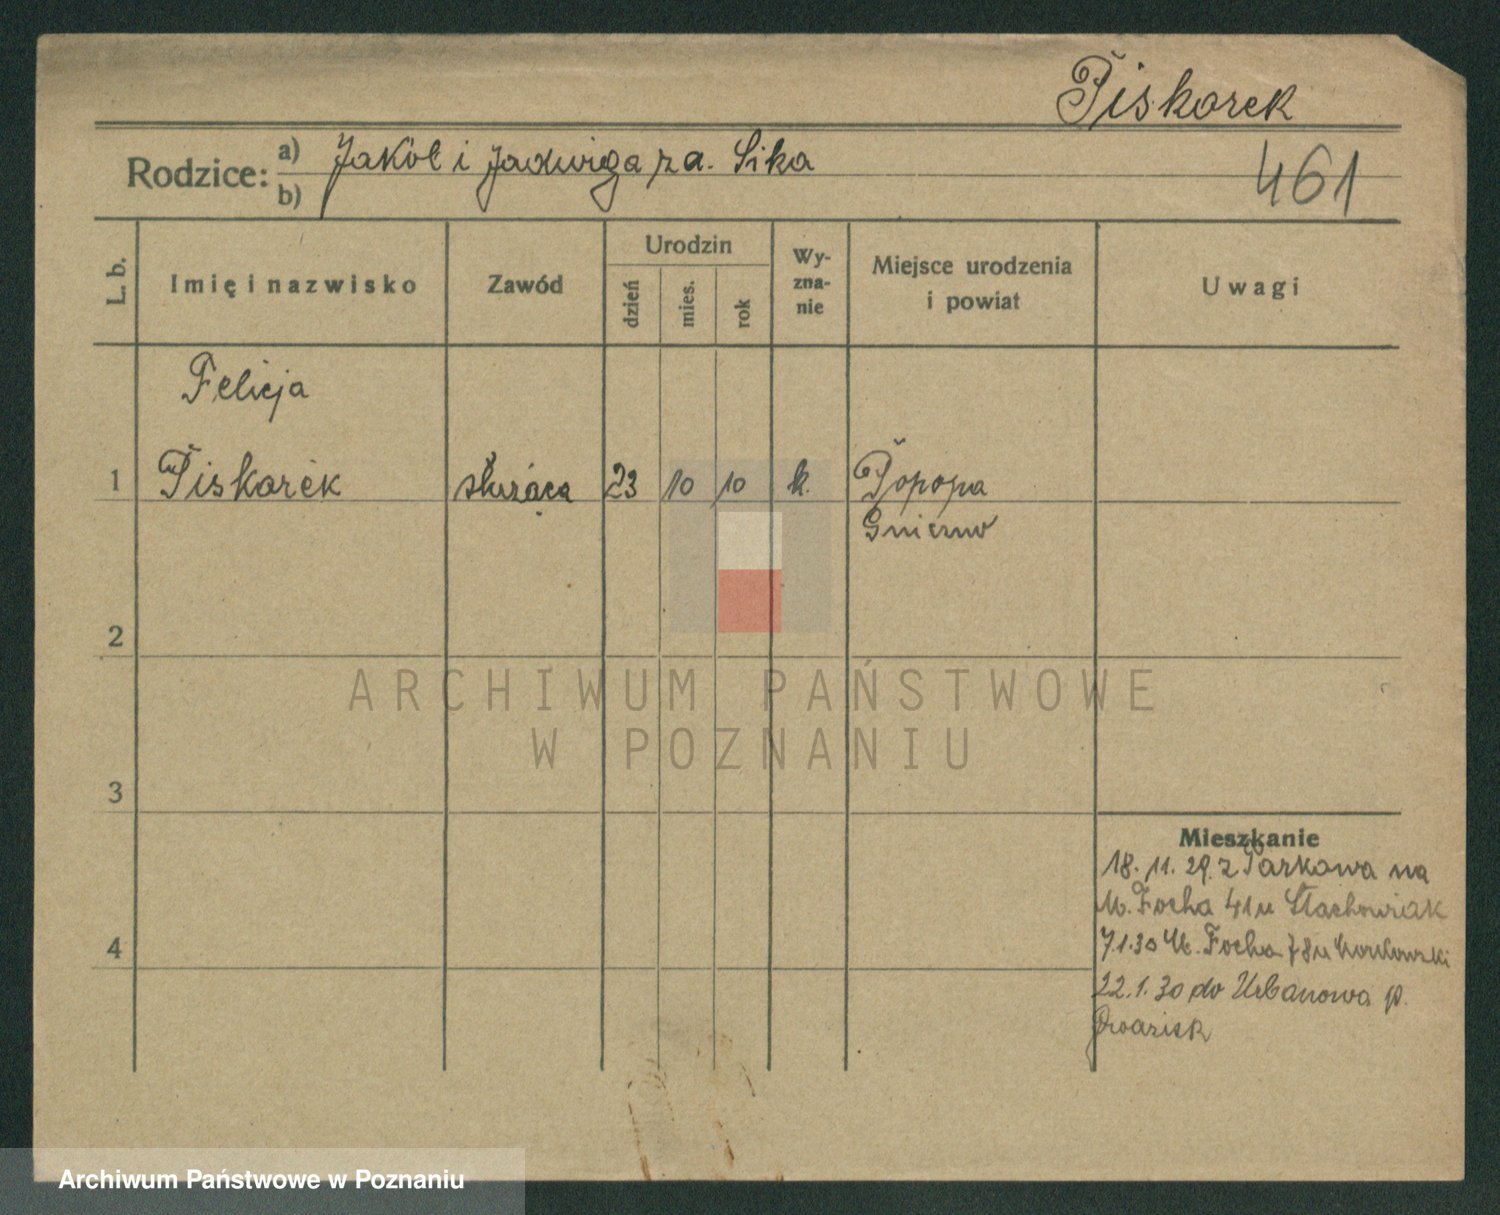 Piskorek
Rodzice: a) Jakób i Jadwiga za. Sika
b)
461
L. b.
Imię i nazwisko
Zawód
Urodzin
dzień
mies.
rok
Wy-
zna-
nie
Miejsce urodzenia
i powiat
Uwagi
Felicja
1 Piskorek służąca 23 10 10 k. Popopa
Gniezno
2
ARCHIWUM PAŃSTWOWE
W POZNANIU
3
Mieszkanie
18. 11. 29. z Parkowa na
M. Focha 41 u Stachowiak
7.1.30 M. Focha 78 u
22.1.30 do Urbanowa p.
4
Archiwum Państwowe w Poznaniu